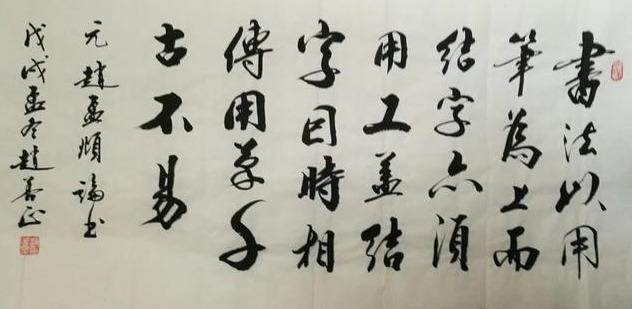 書法以用
筆為上而
結字亦須
用工蓋結
字因時相
傳用筆千
古不易
元趙孟頫論書
戊戌孟冬趙善正